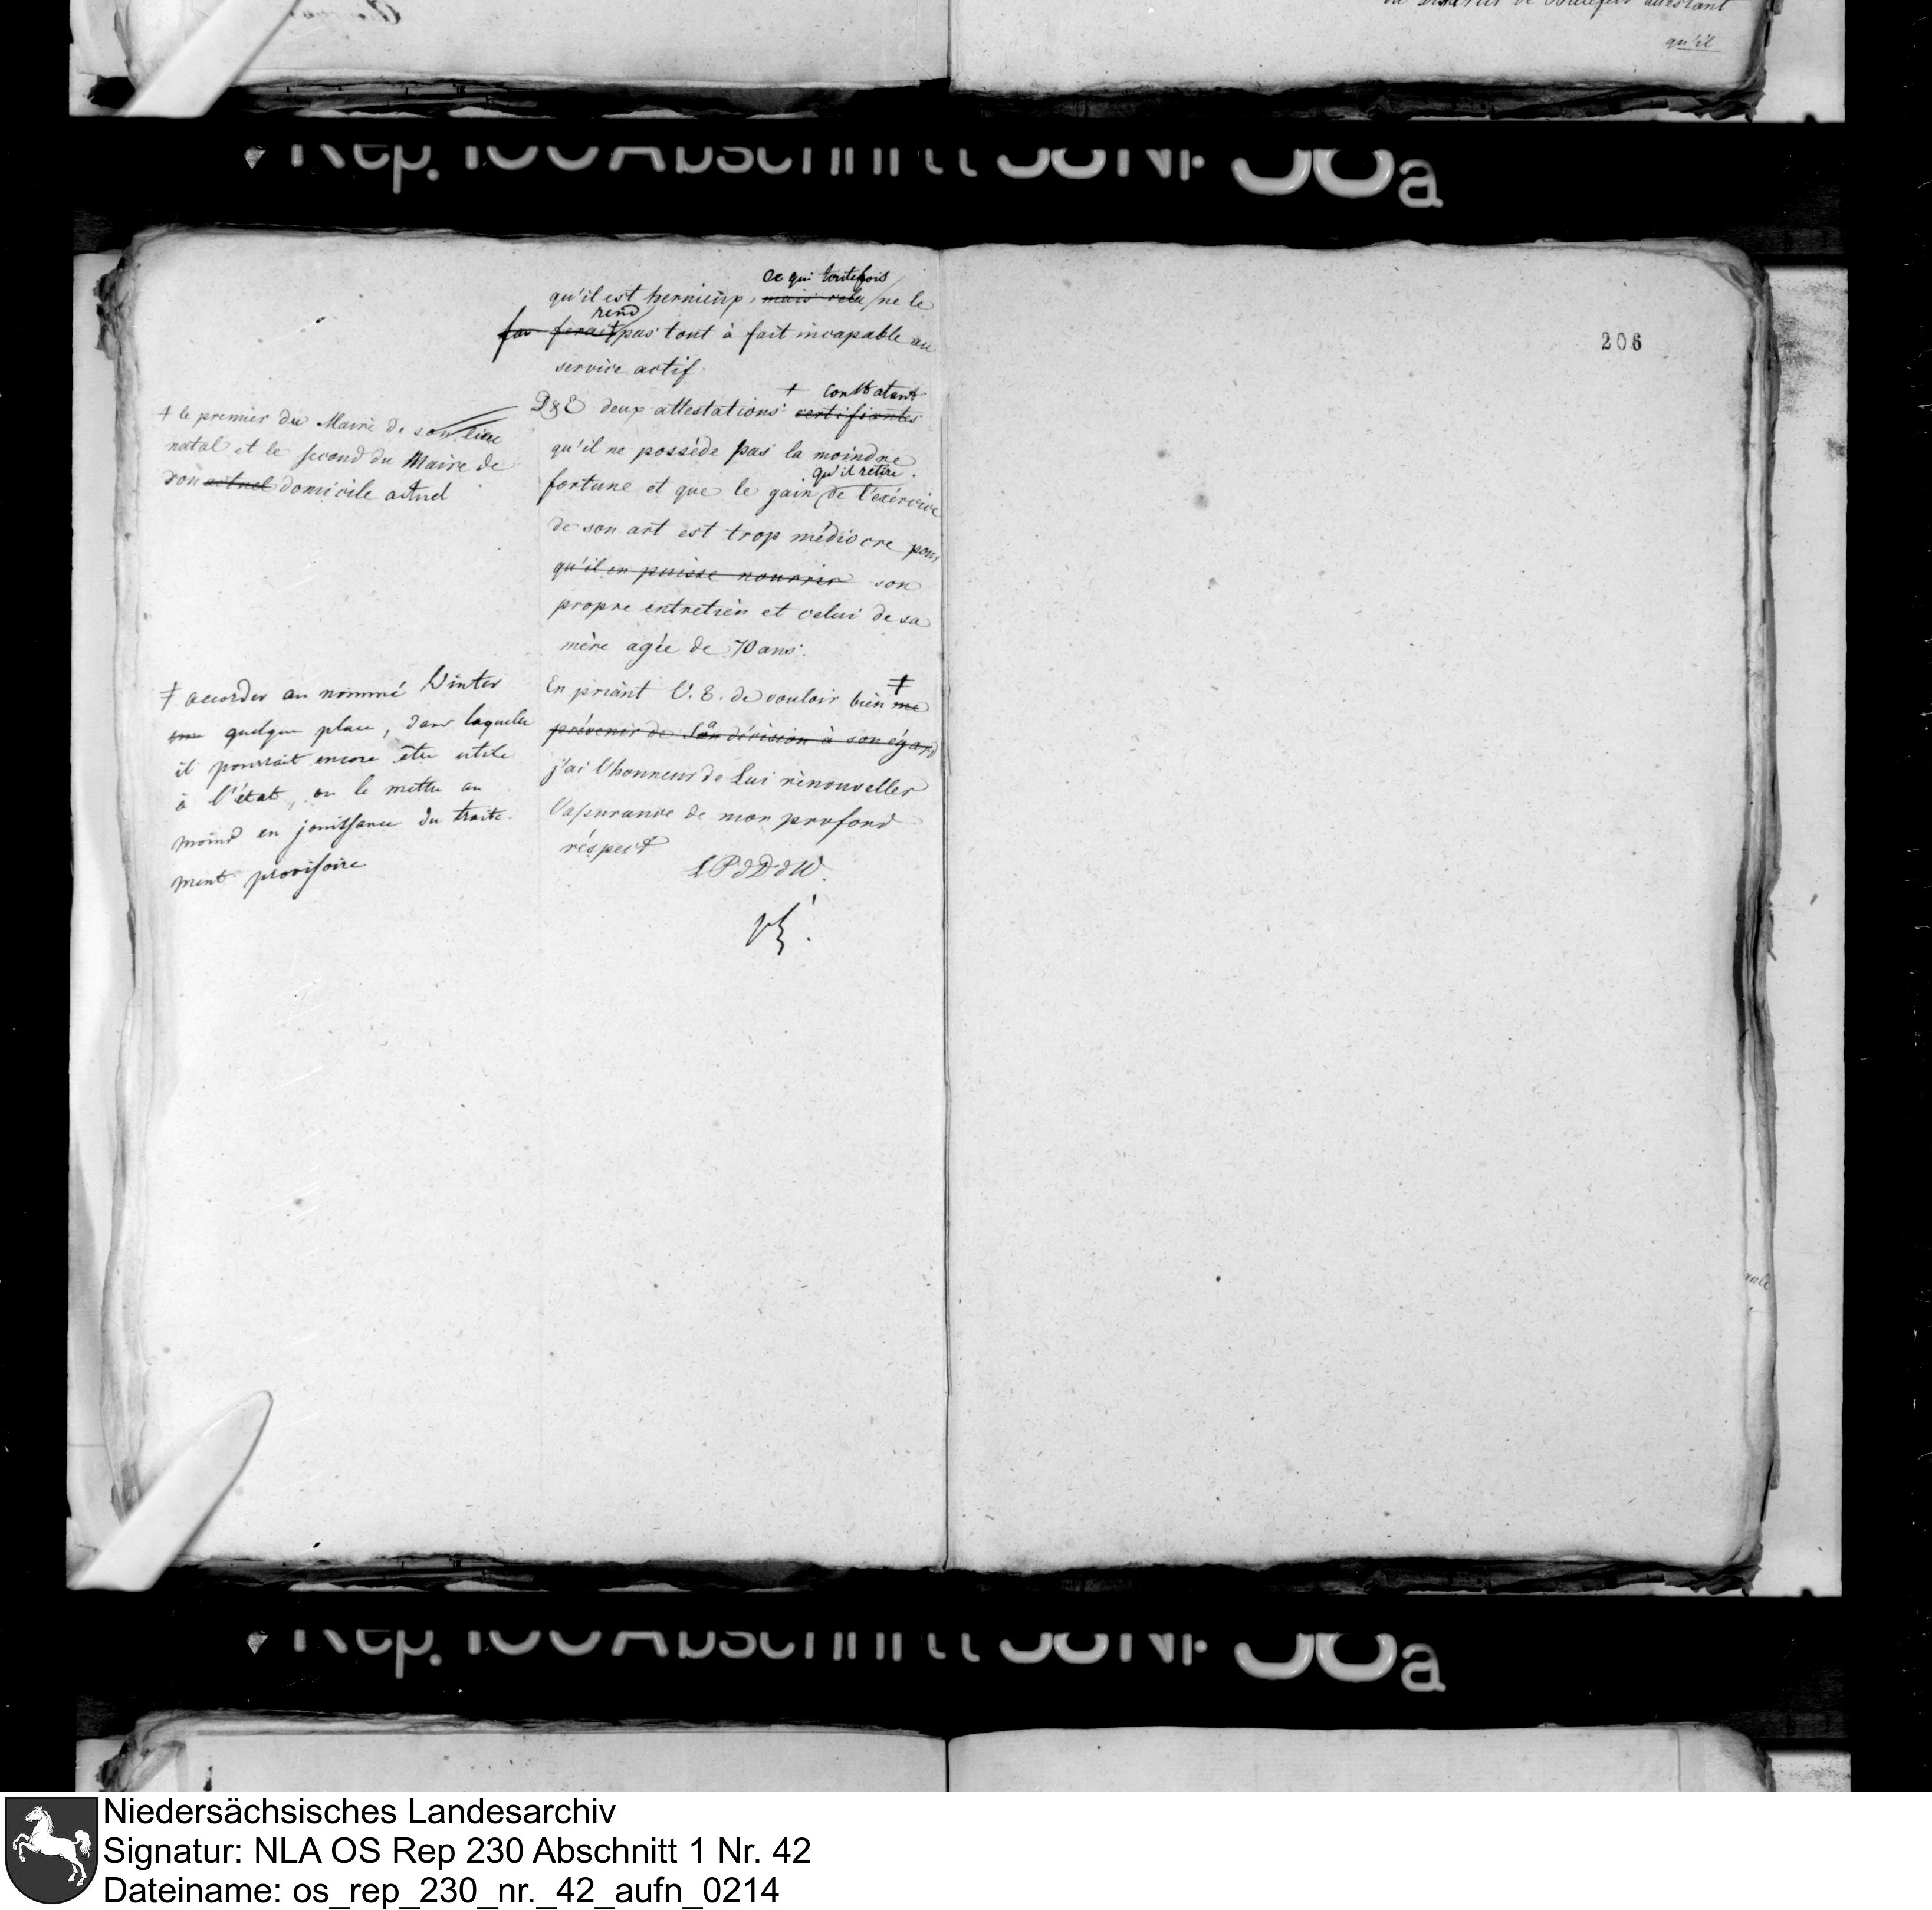 qu'il
Rep. 100 Abschnitt 58 Nr 38a
ce qui toutefois
qu'il est hernieux, mais cela ne le
rend
fav ferait pas tout à fait incapable au
service actif.
+ constatant
D & E deux attestations certifiantes
qu'il ne possède pas la moindre
qu'il retire
fortune et que le gain de l'exércice
de son art est trop médiocre pour
qu'il en puisse nourrir son
propre entretien et celui de sa
mère agée de 70 ans.
En priant V. E. de vouloir bien ‡ me
prévenir de Sa décision à son égard
j'ai l'honneur de Lui rénouveller
l'assurance de mon profond
réspect
LPdDdW.
+ le premier du Maire de son lieu
natal et le second du Maire de
son actuel domicile actuel
‡ accorder au nommé Winter
une quelque place, dans laquelle
il pourrait encore être utile
à l'état, ou le mettre au
moins en jouissance du traite-
ment provisoire
206
Rep. 100 Abschnitt 58 Nr 38a
Niedersächsisches Landesarchiv
Signatur: NLA OS Rep 230 Abschnitt 1 Nr. 42
Dateiname: os_rep_230_nr._42_aufn_0214